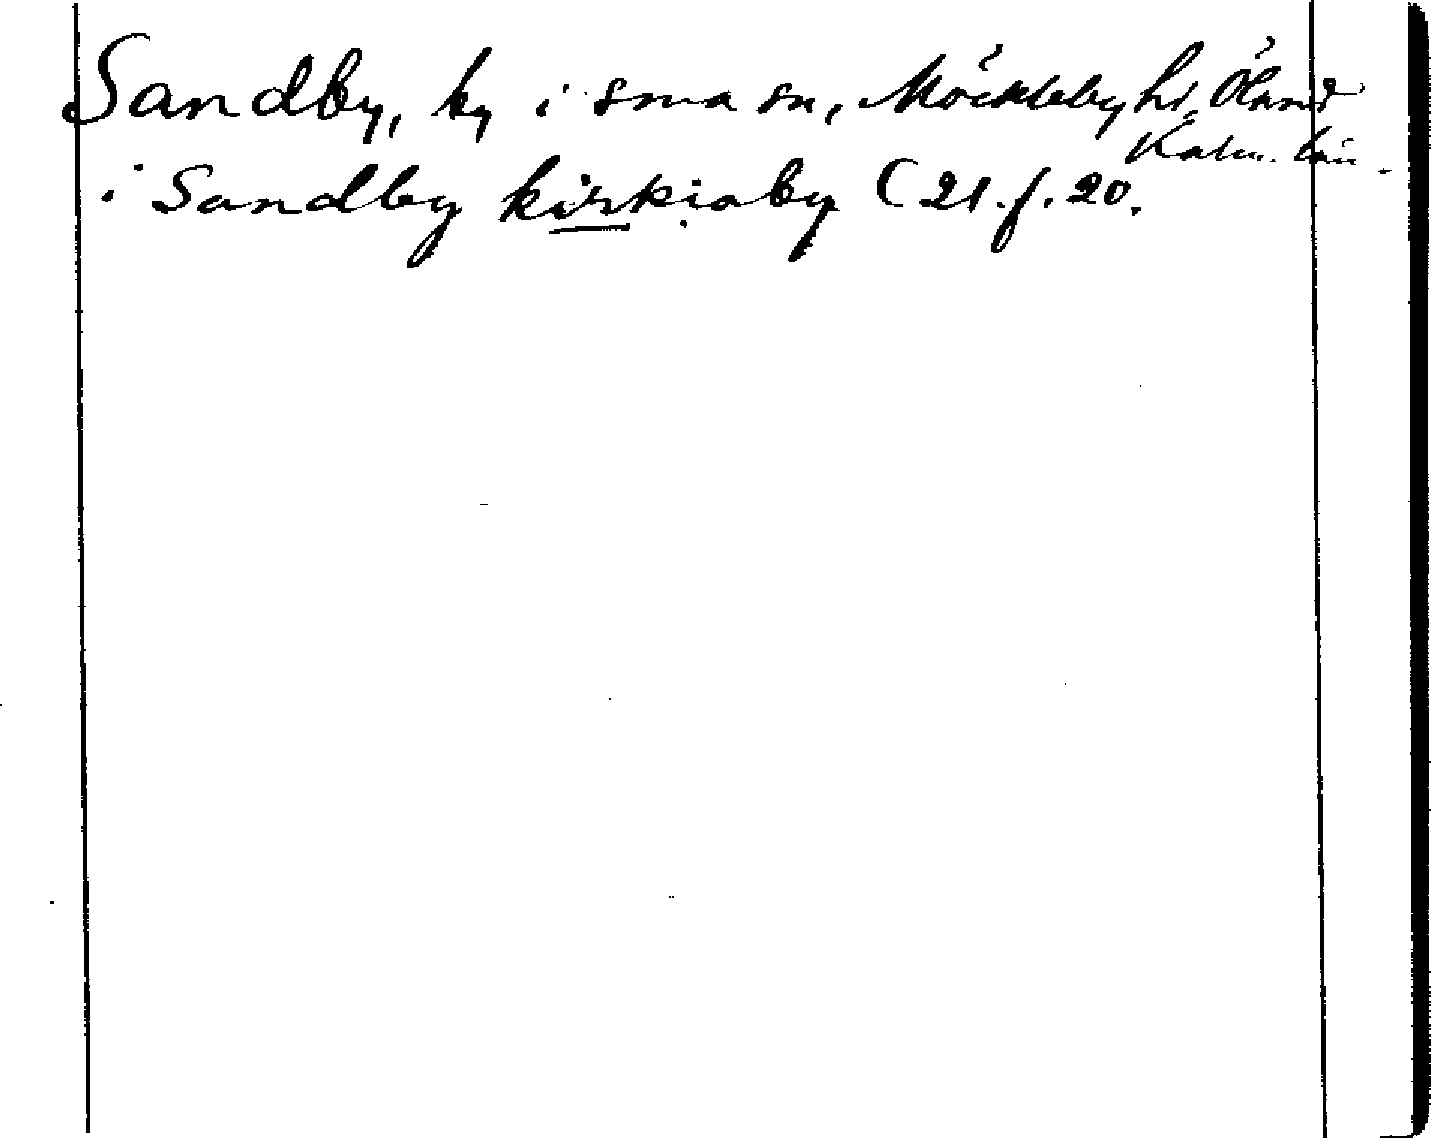 Sandby, by i sma sn, Möckleby hd, Öland
Kalm. län
i Sandby kirkiaby (21.f.20.